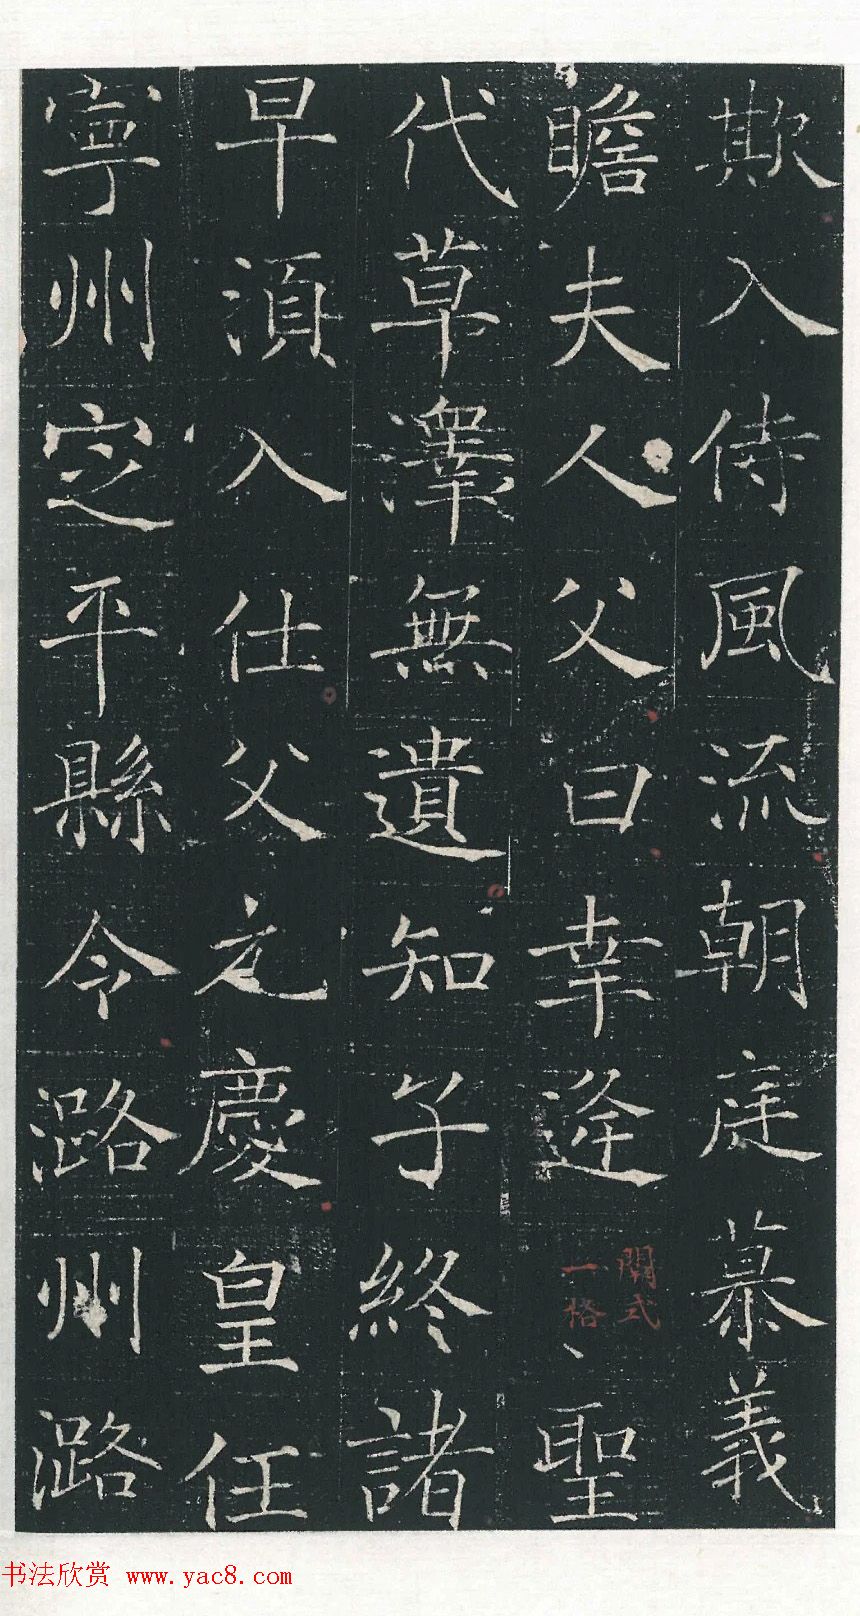 欺入侍風流朝庭慕義
瞻夫人父曰幸逢聖
式
一格
代草澤無遺知子終諸
早湏入仕父之慶皇任
寧州定平縣令潞州潞
书法欣赏 www.yac8.com